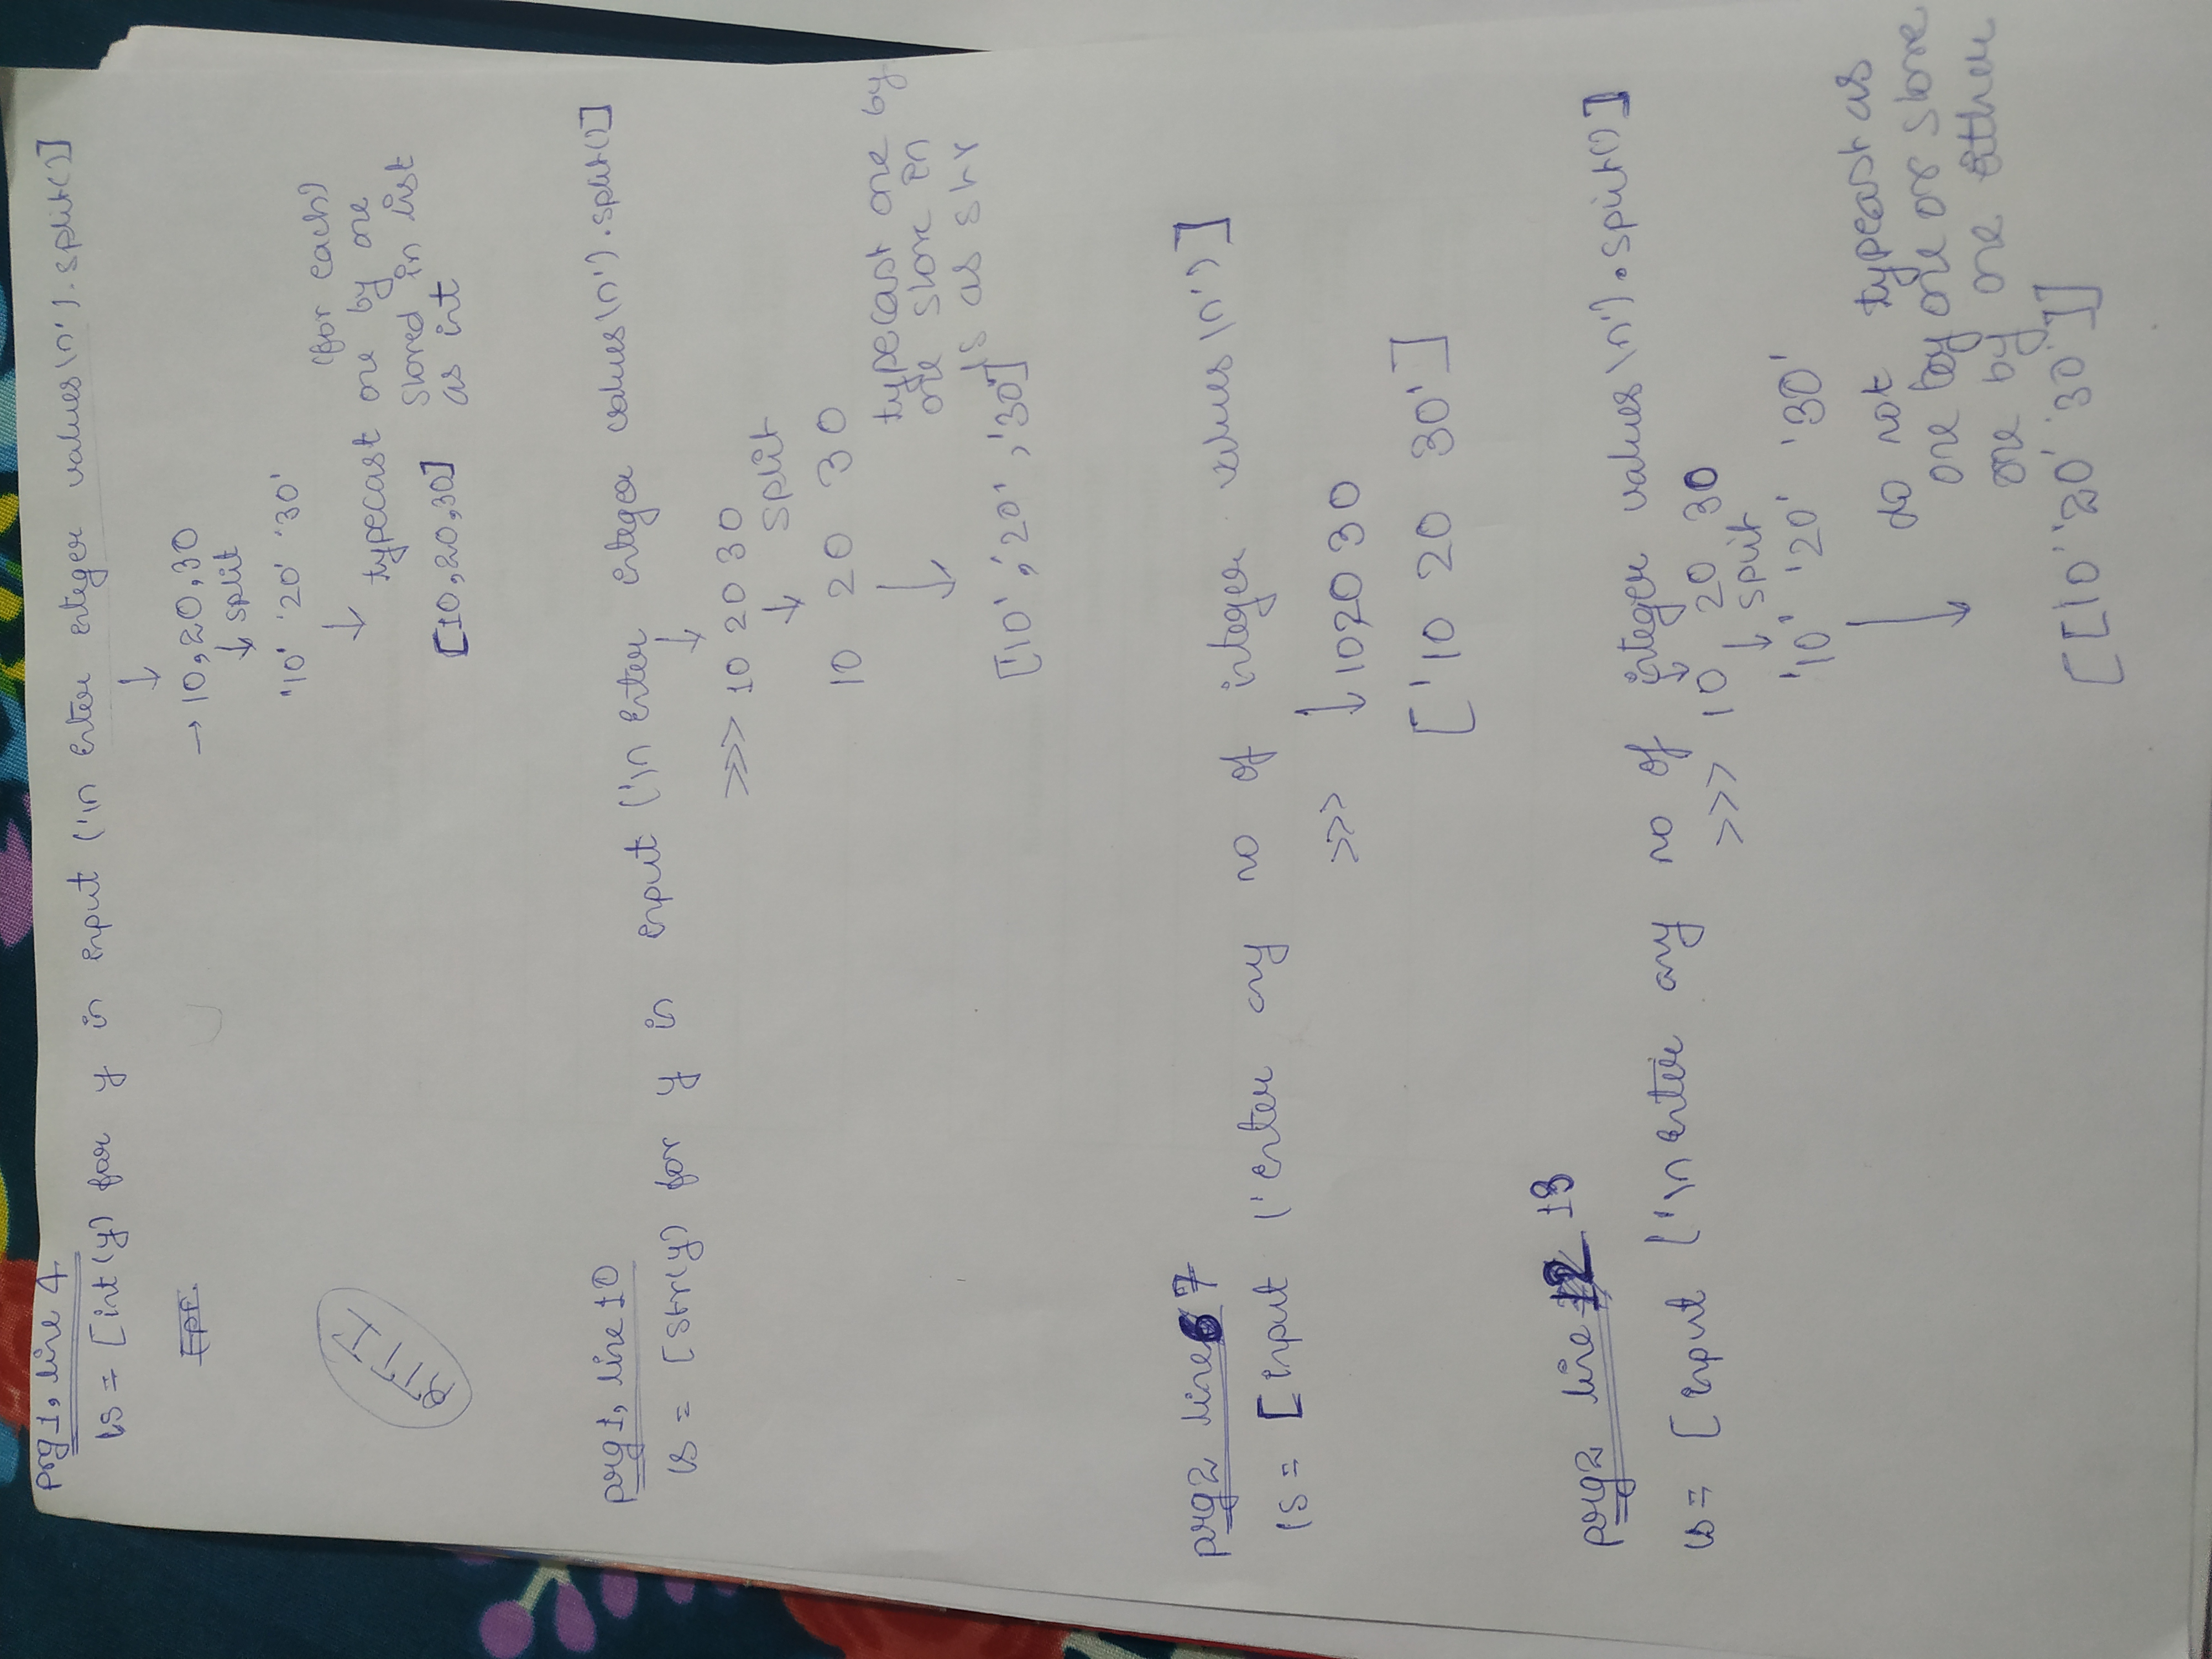 prg1, line 4
ls = [int(y) for y in input ('\n Enter integer values\n').split()]
↓
→ 10,20,30
↓ split
'10' '20' '30'
↓
(for each)
typecast one by one
stored in list
[10,20,30] as int
RTTI
prg1, line 10
ls = [str(y) for y in input ('\n Enter integer values\n').split()]
↓
>>> 10 20 30
↓ split
10 20 30
↓
typecast one by
one store in
ls as str
['10','20','30']
prg2 line 7
ls = [input ('Enter any no of integer values\n')]
>>> ↓ 10 20 30
['10 20 30']
prg2 line 13
ls = [input ('\n Enter any no of integer values\n').split()]
↓
>>> 10 20 30
↓ split
'10' '20' '30'
↓
do not typecast as
one by one or store
one by one either
[[10' '20' '30']]